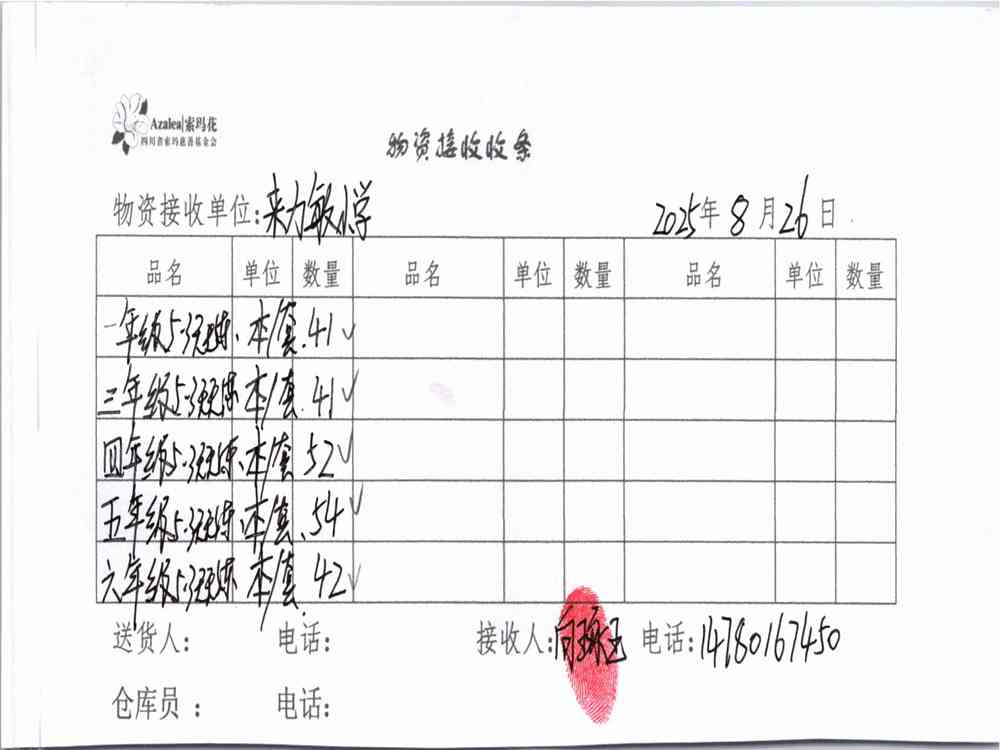 Azalea|索玛花
四川省索玛慈善基金会
物资接收收条
物资接收单位:来力敏小学 2025年8月26日
品名 单位 数量 品名 单位 数量 品名 单位 数量
一年级5·3天天练、 本/套. 41✓
三年级5·3天天练 本/套. 41✓
四年级5·3天天练、 本/套 52✓
五年级5·3天天练、 本/套、 54✓
六年级5·3天天练 本/套. 42✓
送货人: 电话: 接收人:向 玉 电话:14780167450
仓库员 : 电话: